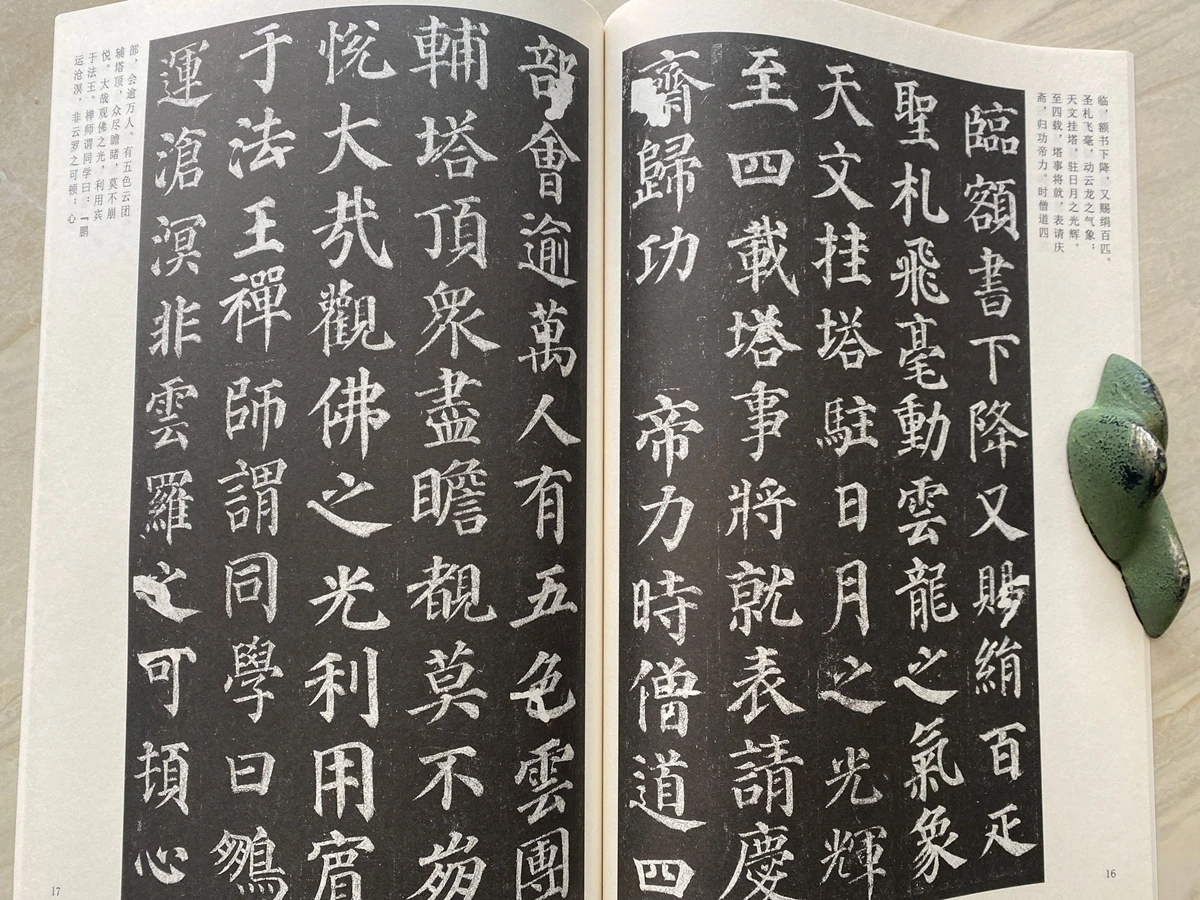 临，额书下降，又赐绢百匹。
圣札飞毫，动云龙之气象；
天文挂塔，驻日月之光辉。
至四载，塔事将就，表请庆
斋，归功帝力。时僧道四
臨額書下降又賜絹百疋
聖札飛毫動雲龍之氣象
天文挂塔駐日月之光輝
至四載塔事將就表請慶
齋歸功 帝力時僧道四
16
部會逾萬人有五色雲團
輔塔頂衆盡瞻覩莫不崩
悅大哉觀佛之光利用賓
于法王禪師謂同學曰鵬
運滄溟非雲羅之可頓心
部，会逾万人。有五色云团
辅塔顶，众尽瞻睹，莫不崩
悦。大哉观佛之光，利用宾
于法王。禅师谓同学曰：『鹏
运沧溟，非云罗之可顿；心
17